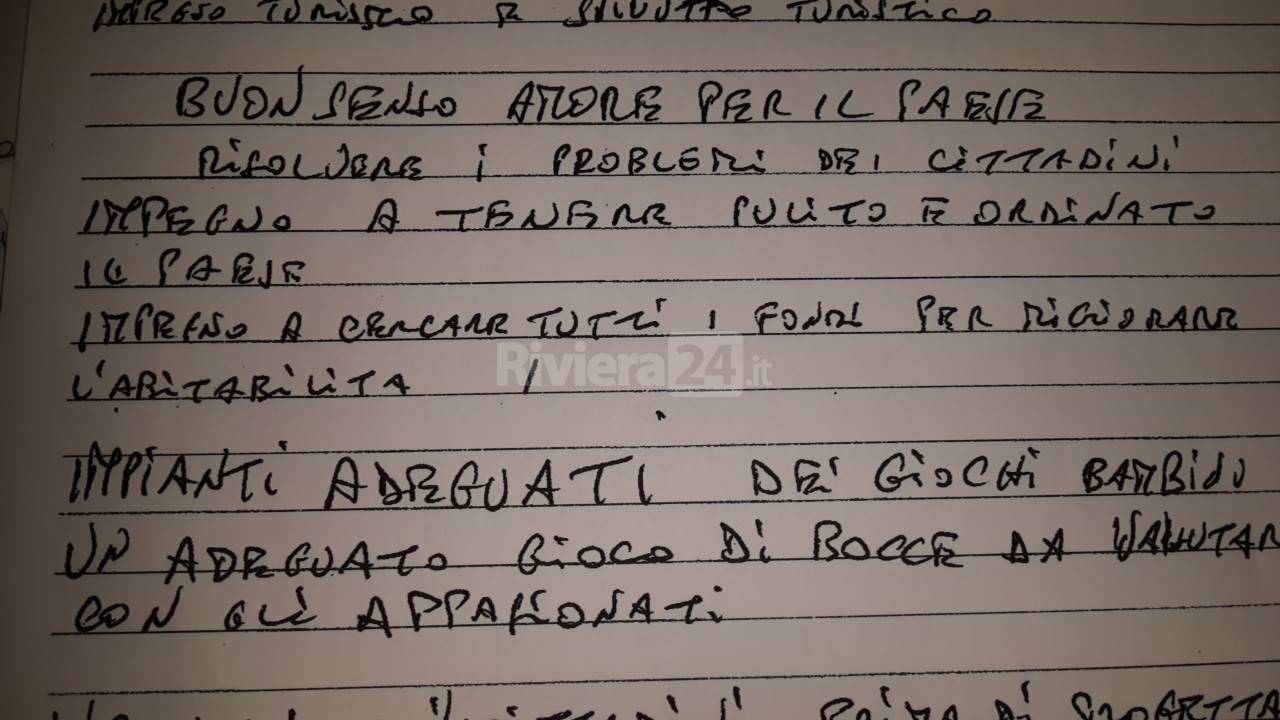 TURISTICO E SVILUPPO TURISTICO
BUON SENSO AMORE PER IL PAESE
RISOLVERE I PROBLEMI DEI CITTADINI
IMPEGNO A TENERE PULITO E ORDINATO
IL PAESE
IMPEGNO A CERCARE TUTTI I FONDI PER MIGLIORARE
L'ABITABILITA
Riviera24.it
IMPIANTI ADEGUATI DEI GIOCHI BAMBINI
UN ADEGUATO GIOCO DI BOCCE DA VALUTAR
CON GLI APPASSIONATI
PRIMA DI